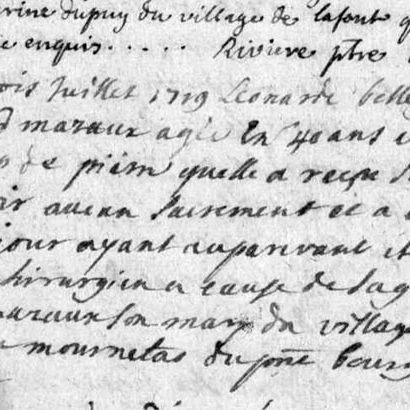 rine dupuy du village de lafont q
e enquis..... Riviere ptre
ois Juillet 1719 Leonarde bell
d mazaux agée En 40 ans
de pieur quelle a reçu
ir aucun sacrement et a
jour ayant auparavant
hirurgien a cause de sa g
mazaux son mary du village
mournetas du pnt bourg